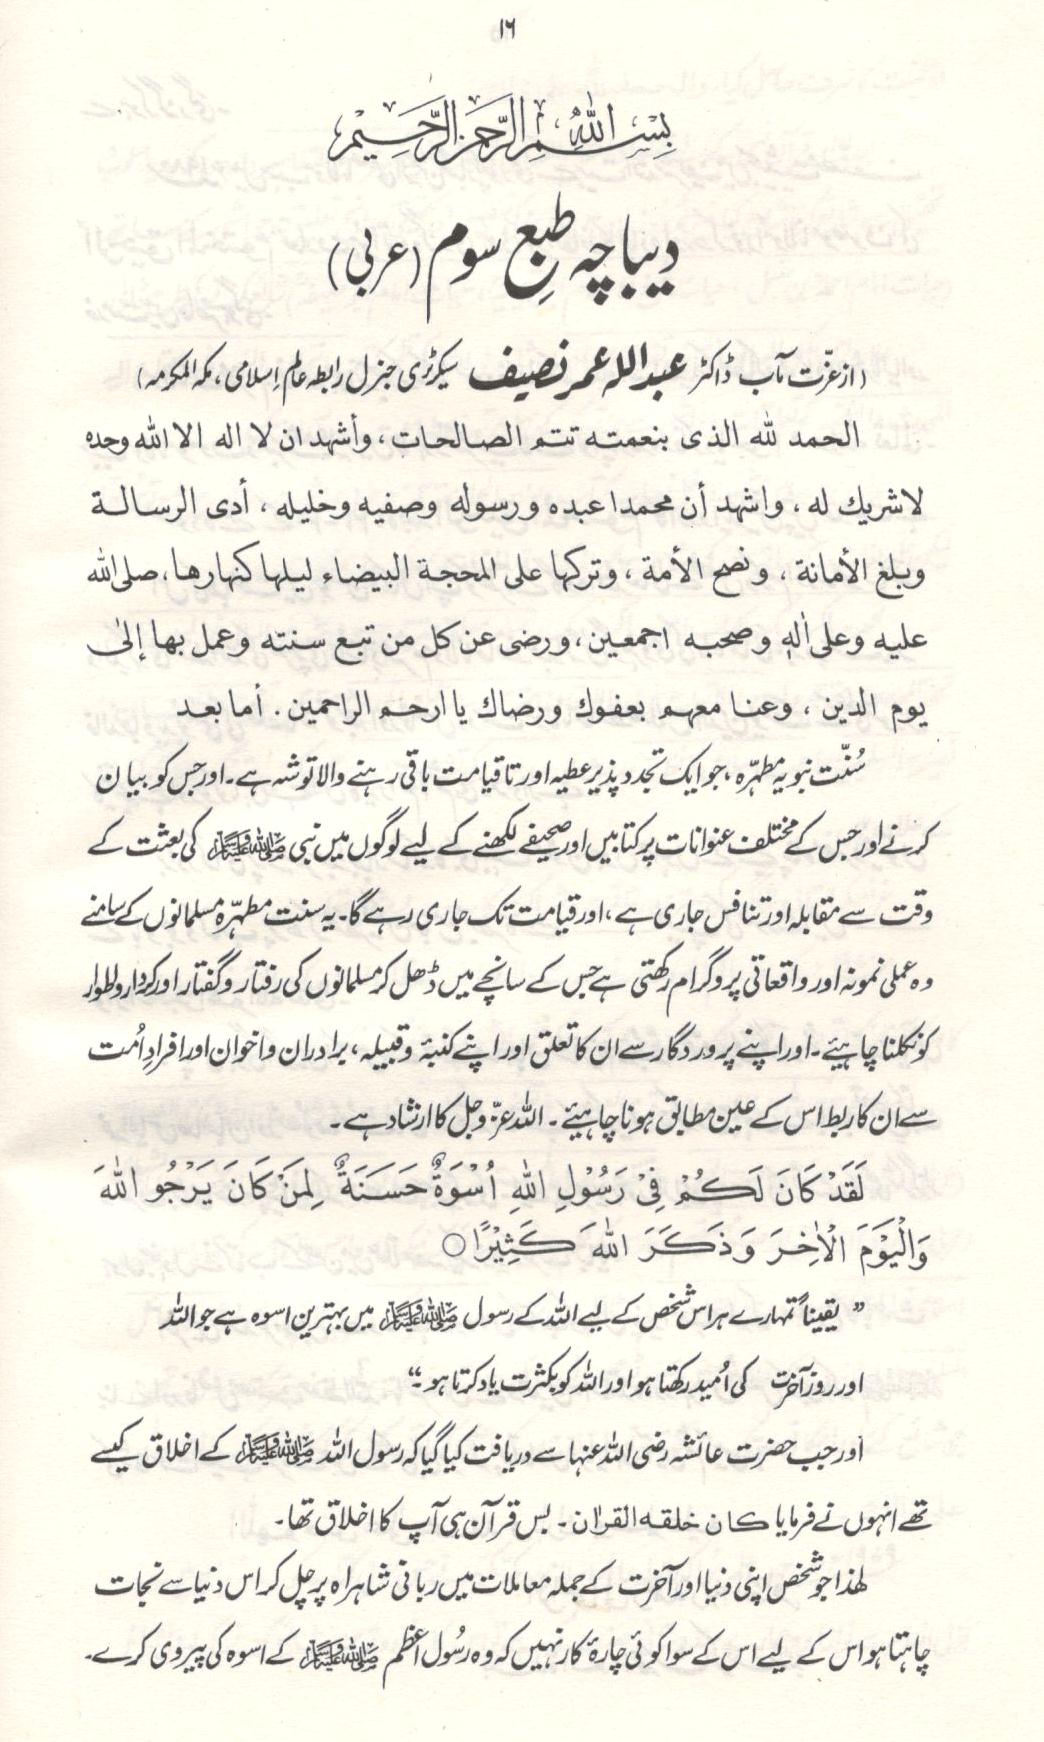 ۱۶
بِسْمِ اللهِ الرَّحْمٰنِ الرَّحِيْمِ
دیباچہ طبعِ سوم (عربی)
(از عزّت مآب ڈاکٹر عبداللہ عمر نصیف سیکرٹری جنرل رابطہ عالم اِسلامی، مکہ المکرمہ)
الحمد لله الذى بنعمته تتم الصالحات، وأشهد ان لا اله الا الله وحده
لاشريك له ، واشهد أن محمدا عبده ورسوله وصفيه وخليله ، أدى الرسالة
وبلغ الأمانة ، ونصح الأمة ، وتركها على المحجة البيضاء ليلها كنهارها، صلى الله
عليه وعلى اٰلهٖ وصحبه اجمعين، ورضى عن كل من تبع سنته وعمل بها إلىٰ
يوم الدين ، وعنا معهم بعفوك ورضاك يا ارحم الراحمين. أما بعد
سُنّت نبویہ مطہّرہ، جو ایک تجدد پذیر عطیہ اور تا قیامت باقی رہنے والا توشہ ہے۔ اور جس کو بیان
کرنے اور جس کے مختلف عنوانات پر کتابیں اور صحیفے لکھنے کے لیے لوگوں میں نبی ﷺ کی بعثت کے
وقت سے مقابلہ اور تنافس جاری ہے، اور قیامت تک جاری رہے گا۔ یہ سنت مطہّرہ مسلمانوں کے سامنے
وہ عملی نمونہ اور واقعاتی پروگرام رکھتی ہے جس کے سانچے میں ڈھل کر مسلمانوں کی رفتار و گفتار اور کردار و اطوار
کو نکلنا چاہیئے۔ اور اپنے پروردگار سے ان کا تعلق اور اپنے کنبۂ و قبیلہ، برادران و اخوان اور افرادِ اُمت
سے ان کا ربط اس کے عین مطابق ہونا چاہیئے ۔ اللہ عزّ وجل کا ارشاد ہے۔
لَقَدْ كَانَ لَكُمْ فِیْ رَسُوْلِ اللهِ اُسْوَةٌ حَسَنَةٌ لِمَنْ كَانَ يَرْجُو اللهَ
وَالْيَوْمَ الْاٰخِرَ وَذَكَرَ اللهَ كَثِيْرًا ○
” یقیناً تمہارے ہر اس شخص کے لیے اللہ کے رسول ﷺ میں بہترین اسوہ ہے جو اللہ
اور روز آخرت کی اُمید رکھتا ہو اور اللہ کو بکثرت یاد کرتا ہو۔“
اور جب حضرت عائشہ رضی اللہ عنہا سے دریافت کیا گیا کہ رسول اللہ ﷺ کے اخلاق کیسے
تھے انہوں نے فرمایا كان خلقه القران۔ بس قرآن ہی آپ کا اخلاق تھا۔
لہٰذا جو شخص اپنی دنیا اور آخرت کے جملہ معاملات میں ربانی شاہراہ پر چل کر اس دنیا سے نجات
چاہتا ہو اس کے لیے اس کے سوا کوئی چارۂ کار نہیں کہ وہ رسُول اعظم ﷺ کے اسوہ کی پیروی کرے۔